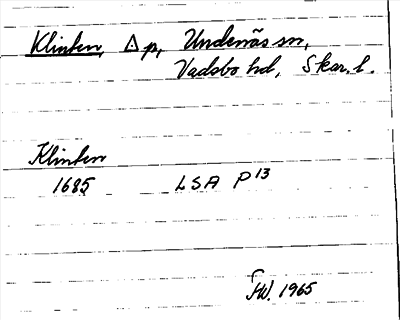 Klinten, △ p, Undenäs sn,
Vadsbo hd, Skar. l.
Klinten
1685 LSA P 13
HW. 1965